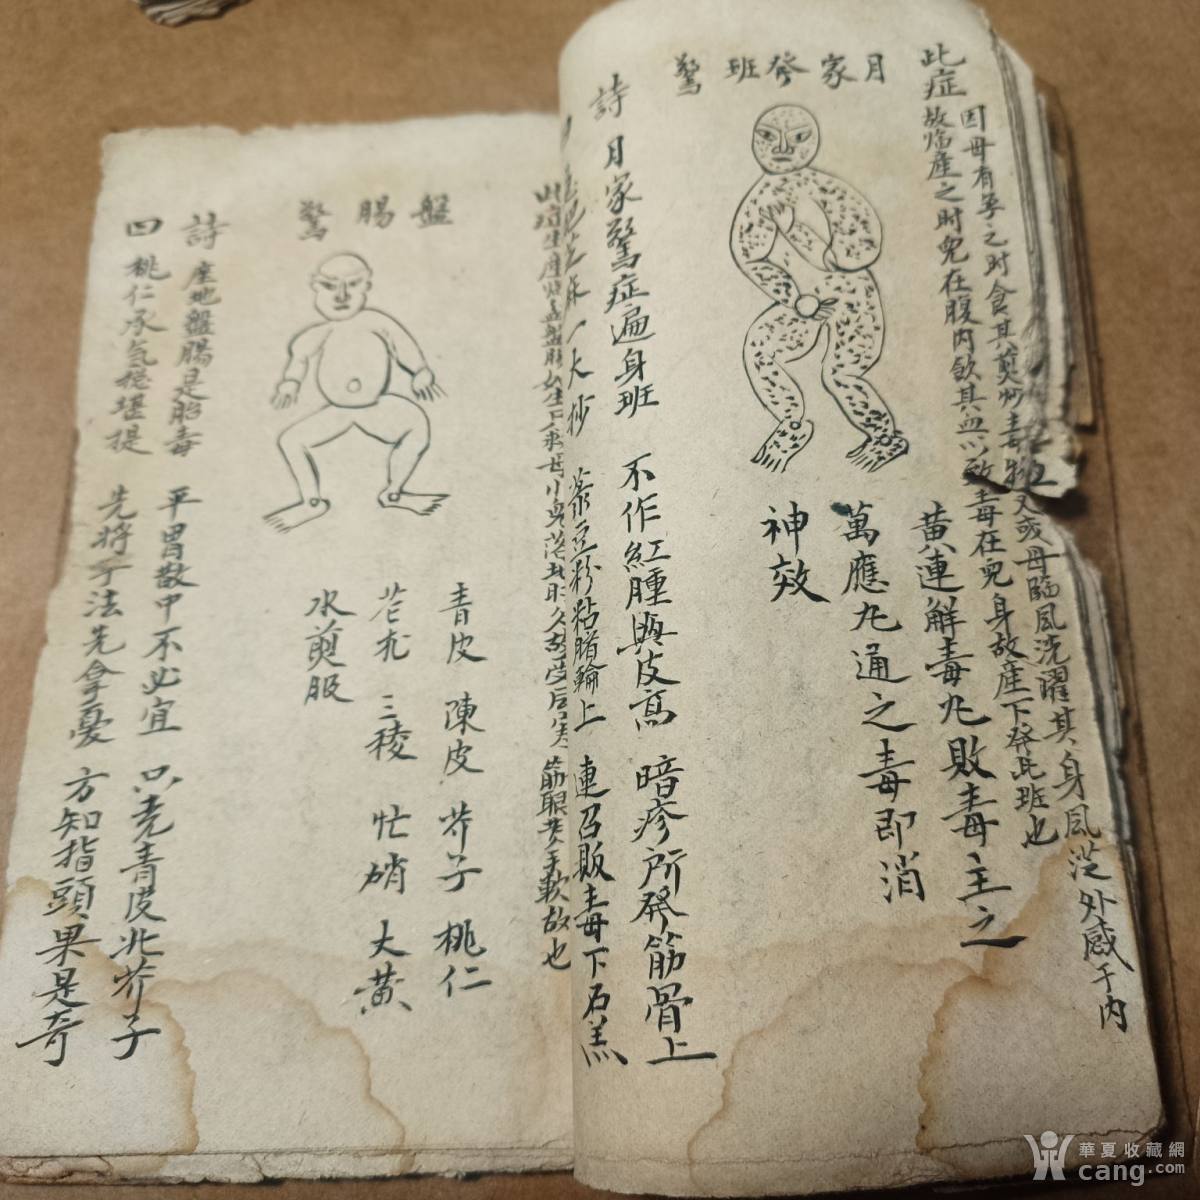 月家發班驚
此症
因母有孕之时食其煎炒毒物又或母臨風洗濯其身風湿外感于内
故临產之时兒在腹内飲其血以致毒在兒身故產下發此班也
黄連解毒九敗毒主之
萬應九通之毒即消
神效
詩
月家驚症遍身班 不作紅腫與皮高 暗疹所發筋骨上
大抄 菉豆粉粘腊輪上 連召敗毒下石羔
盤腸驚
青皮 陳皮 芥子 桃仁
三稜 忙硝 大黄
水煎服
詩
產地盤腸是胎毒 平胃散中不必宜 只尭青皮北芥子
四
桃仁承氣穏堪提 先将手法先拿憂 方知指頭果是奇
華夏收藏網
cang.com